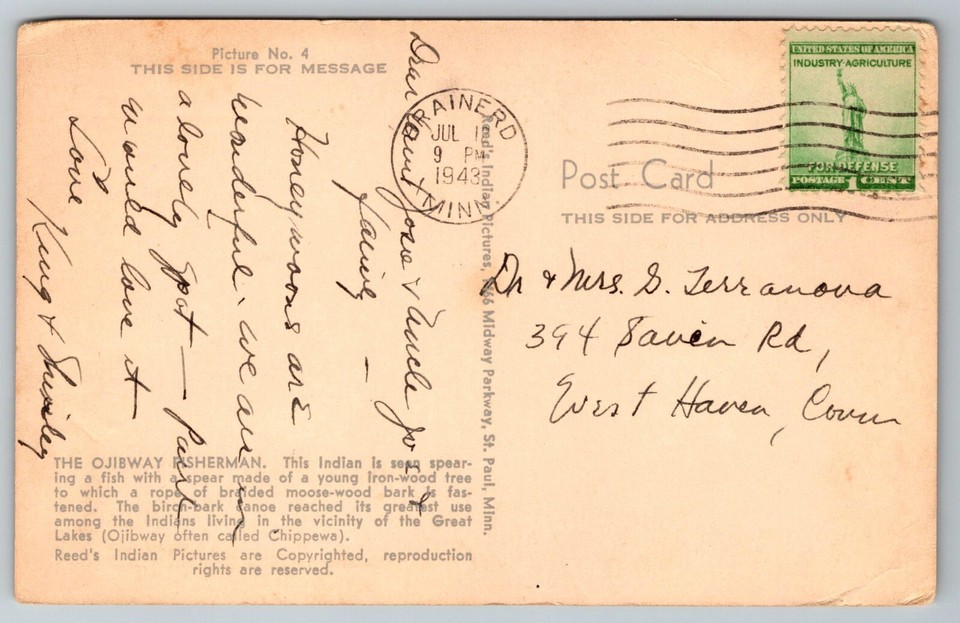 Picture No. 4
THIS SIDE IS FOR MESSAGE
Dear Aunt Jose & Uncle Jo &
family —
Honeymoons are
wonderful. We are in
a lovely spot — Paul
would love it
Love
King & Shirley
THE OJIBWAY FISHERMAN. This Indian is seen spear-
ing a fish with a spear made of a young iron-wood tree
to which a rope of braided moose-wood bark is fas-
tened. The birch-bark canoe reached its greatest use
among the Indians living in the vicinity of the Great
Lakes (Ojibway often called Chippewa).
Reed's Indian Pictures are Copyrighted, reproduction
rights are reserved.
Reed's Indian Pictures, Midway Parkway, St. Paul, Minn.
BRAINERD
JUL
9 PM
1943
MINN
UNITED STATES OF AMERICA
INDUSTRY·AGRICULTURE
FOR DEFENSE
POSTAGE 1 CENT
Post Card
THIS SIDE FOR ADDRESS ONLY
Dr & Mrs. G. Terranova
394 Savin Rd,
West Haven, Conn